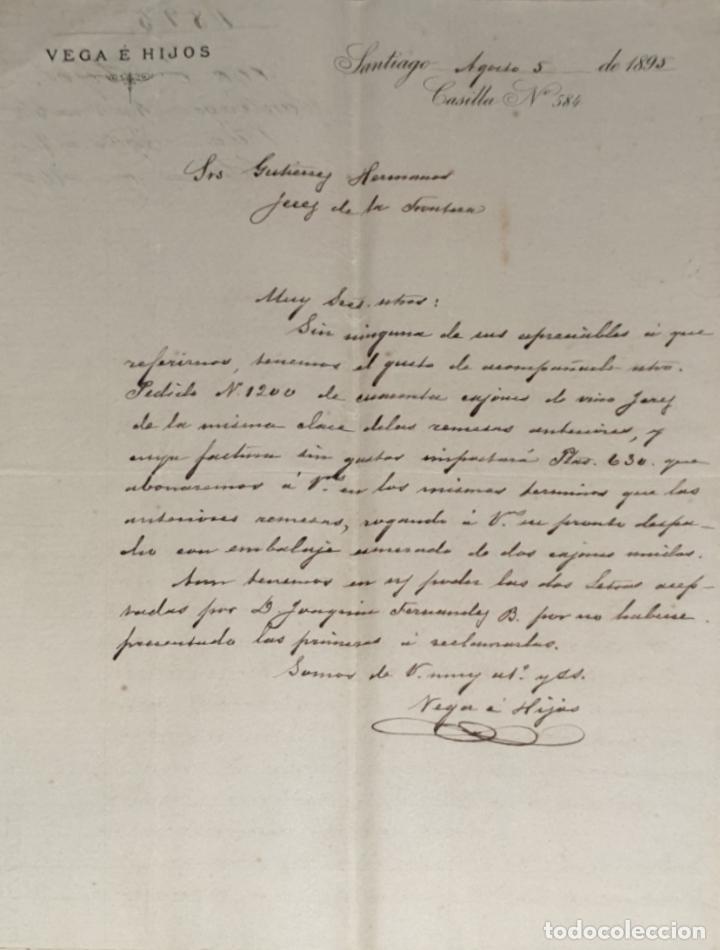 VEGA É HIJOS
Santiago Agosto 5 de 1895
Casilla Nº 584
Srs Gutierrez Hermanos
Jerez de la Frontera
Muy Sres. ntros:
Sin ninguna de sus apreciables á que
referirnos, tenemos el gusto de acompañarle ntro.
Pedido N. 1200 de cuarenta cajones de vino Jerez
de la misma clase delas remesas anteriores, y
cuya factura sin gastos importará Ptas. 630. que
abonaremos á V. en los mismos terminos que las
anteriores remesas, rogando á V. su pronto despa-
cho con embalaje esmerado de dos cajones unidos.
Aun tenemos en n/ poder las dos Letras acep-
tadas por D. Joaquin Fernandez B. por no haberse
presentado las primeras á reclamarlas.
Somos de V. muy att. y SS.
Vega é Hijos
todocoleccion